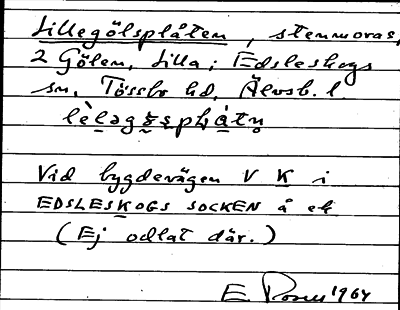 Lillegölsplåten, stenmoras,
2 Gölen, Lilla; Edsleskogs
sn, Tössbo hd, Älvsb. l.
Vid bygdevägen V K i
EDSLESKOGS SOCKEN å ek
(Ej odlat där.)
E. 1964